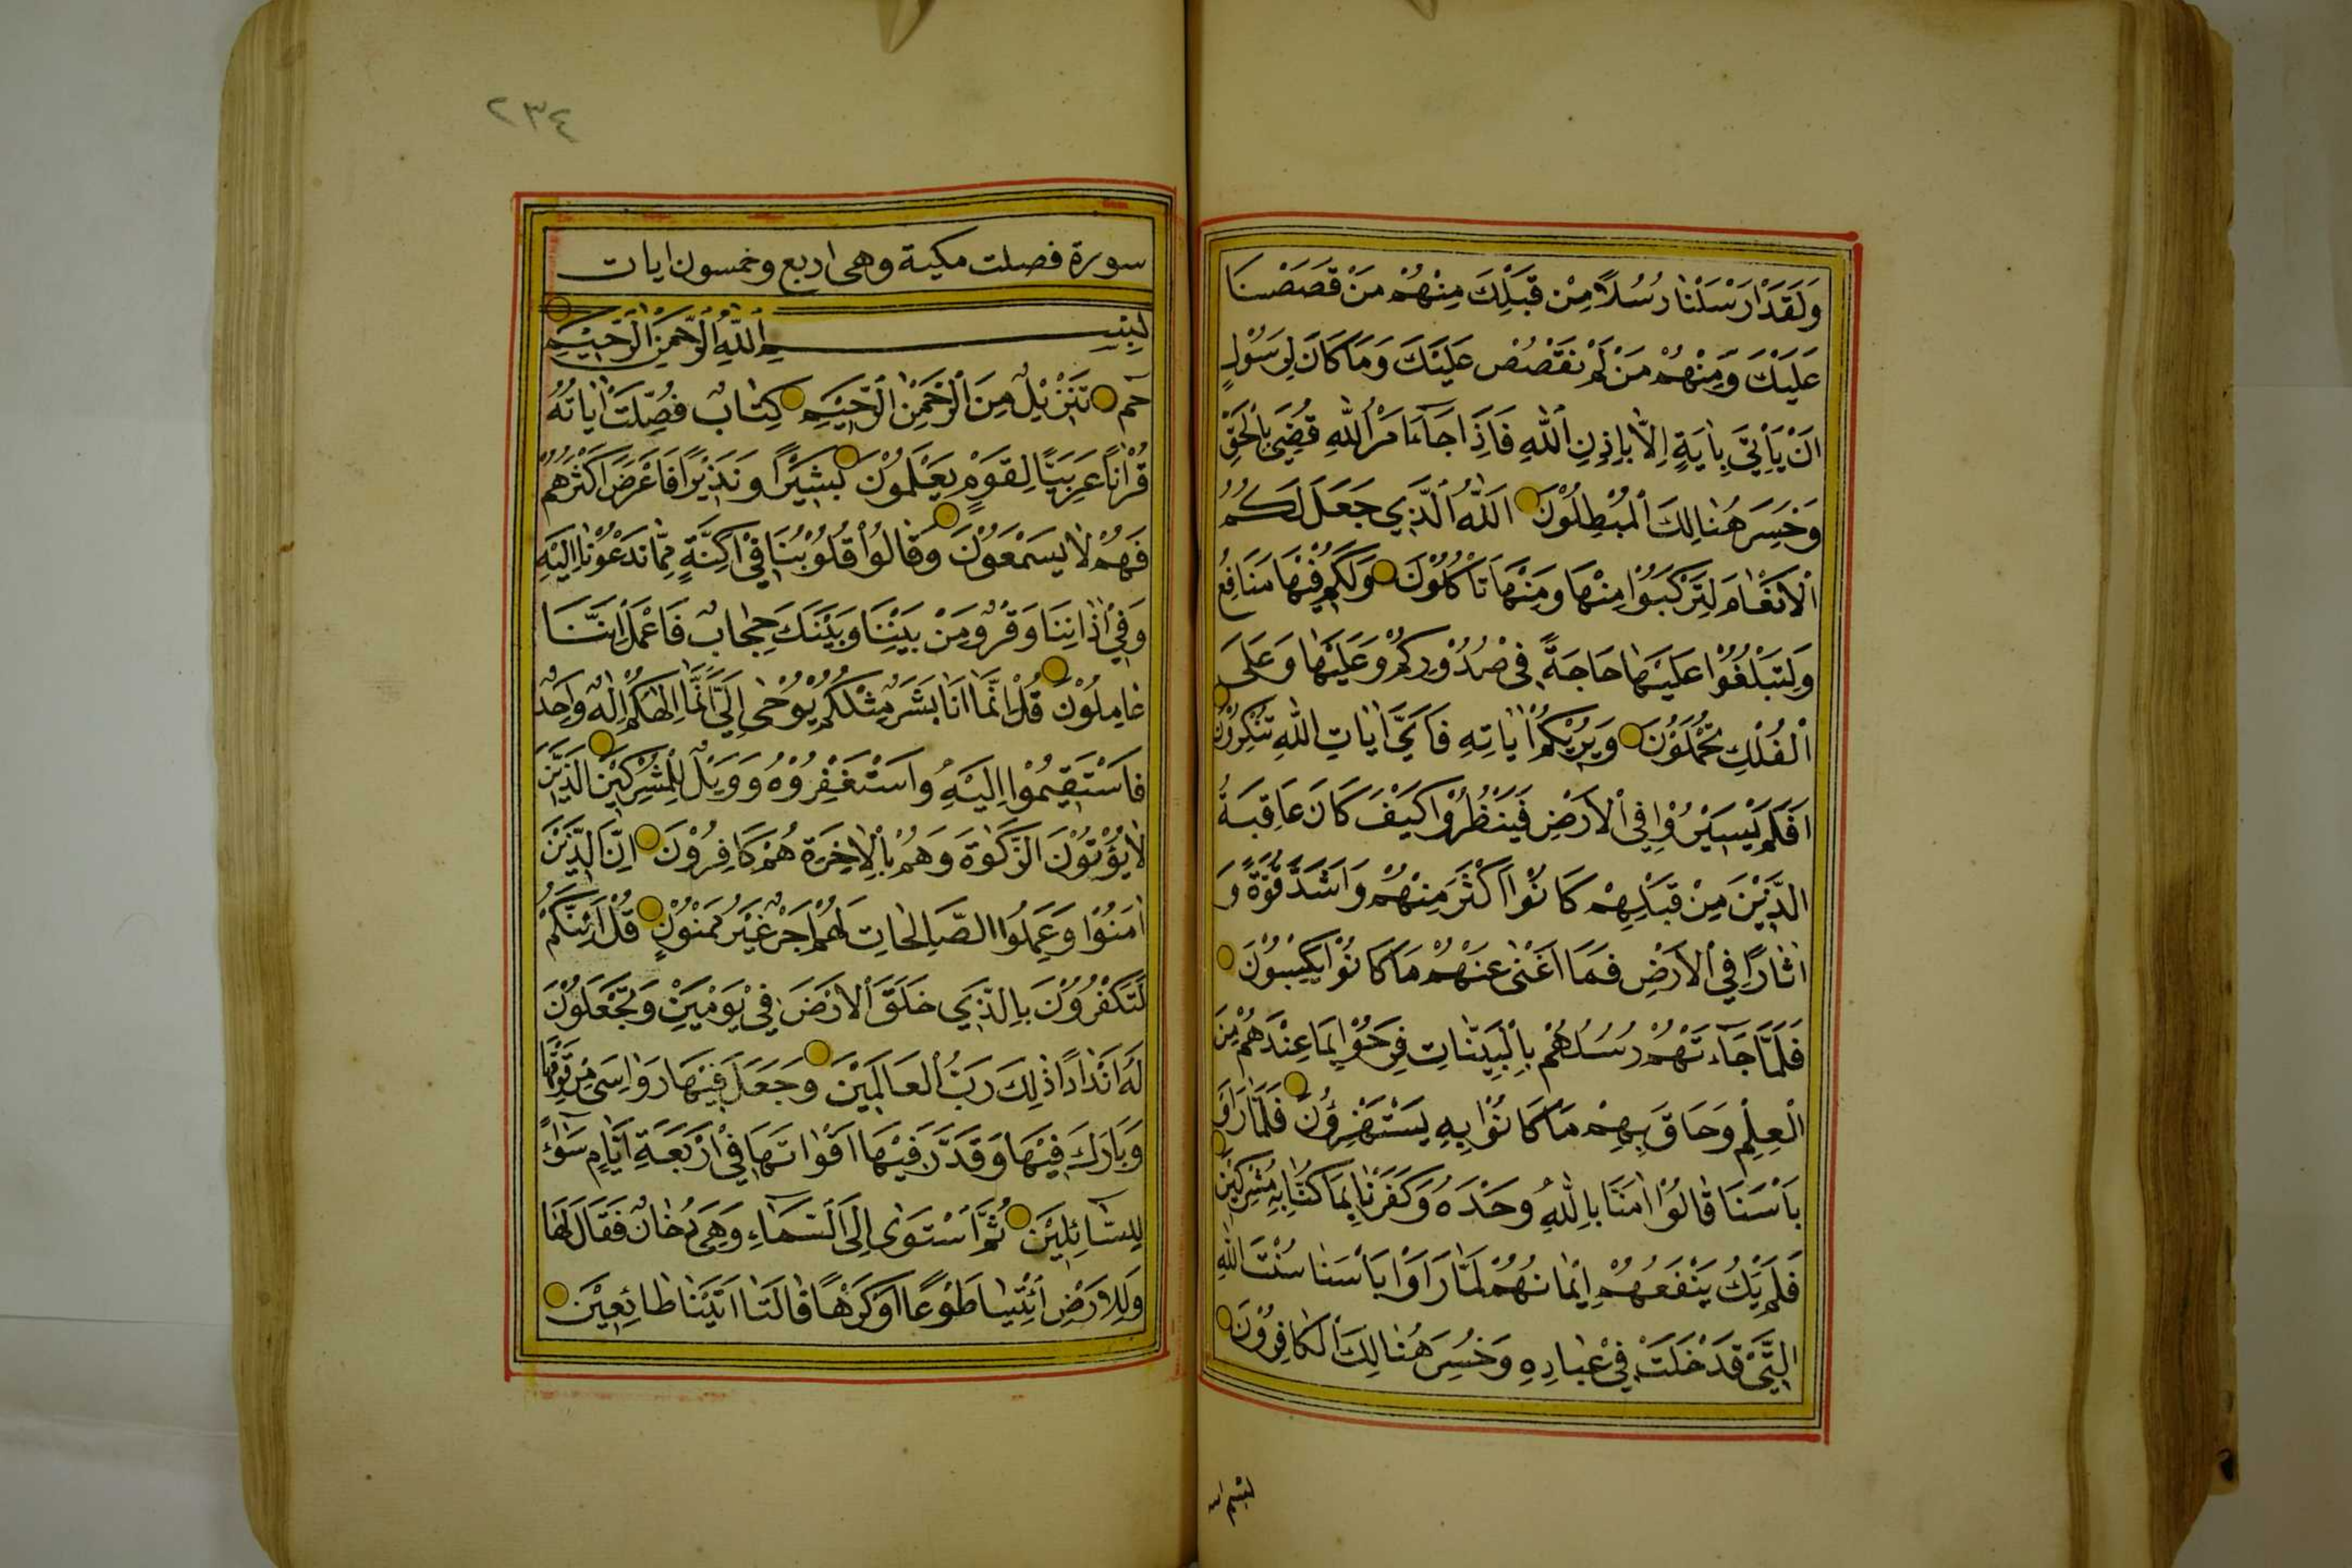 وَلَقَدْ اَرْسَلْنَا رُسُلًا مِنْ قَبْلِكَ مِنْهُمْ مَنْ قَصَصْنَا
عَلَيْكَ وَمِنْهُمْ مَنْ لَمْ نَقْصُصْ عَلَيْكَ وَمَا كَانَ لِرَسُولٍ
اَنْ يَأْتِيَ بِاٰيَةٍ اِلَّا بِاِذْنِ اللّٰهِ فَاِذَا جَآءَ اَمْرُ اللّٰهِ قُضِيَ بِالْحَقِّ
وَخَسِرَ هُنَالِكَ الْمُبْطِلُوْنَ اَللّٰهُ الَّذِي جَعَلَ لَكُمُ
الْاَنْعَامَ لِتَرْكَبُوْا مِنْهَا وَمِنْهَا تَأْكُلُوْنَ وَلَكُمْ فِيْهَا مَنَافِعُ
وَلِتَبْلُغُوْا عَلَيْهَا حَاجَةً فِي صُدُوْرِكُمْ وَعَلَيْهَا وَعَلَى
الْفُلْكِ تُحْمَلُوْنَ وَيُرِيْكُمْ اٰيَاتِهِ فَاَيَّ اٰيَاتِ اللّٰهِ تُنْكِرُوْنَ
اَفَلَمْ يَسِيْرُوْا فِي الْاَرْضِ فَيَنْظُرُوْا كَيْفَ كَانَ عَاقِبَةُ
الَّذِيْنَ مِنْ قَبْلِهِمْ كَانُوْا اَكْثَرَ مِنْهُمْ وَاَشَدَّ قُوَّةً وَ
اٰثَارًا فِي الْاَرْضِ فَمَا اَغْنٰى عَنْهُمْ مَا كَانُوْا يَكْسِبُوْنَ
فَلَمَّا جَآءَتْهُمْ رُسُلُهُمْ بِالْبَيِّنَاتِ فَرِحُوْا بِمَا عِنْدَهُمْ مِنَ
الْعِلْمِ وَحَاقَ بِهِمْ مَا كَانُوْا بِهِ يَسْتَهْزِؤُنَ فَلَمَّا رَاَوْا
بَاْسَنَا قَالُوْا اٰمَنَّا بِاللّٰهِ وَحْدَهُ وَكَفَرْنَا بِمَا كُنَّا بِهِ مُشْرِكِيْنَ
فَلَمْ يَكُ يَنْفَعُهُمْ اِيْمَانُهُمْ لَمَّا رَاَوْا بَاْسَنَا سُنَّتَ اللّٰهِ
الَّتِيْ قَدْ خَلَتْ فِيْ عِبَادِهِ وَخَسِرَ هُنَالِكَ الْكَافِرُوْنَ
٢٣٤
سورة فصلت مكية وهى اربع وخمسون ايات
بِسْمِ اللّٰهِ الرَّحْمٰنِ الرَّحِيْمِ
حٰم تَنْزِيْلٌ مِنَ الرَّحْمٰنِ الرَّحِيْمِ كِتَابٌ فُصِّلَتْ اٰيَاتُهُ
قُرْاٰنًا عَرَبِيًّا لِقَوْمٍ يَعْلَمُوْنَ بَشِيْرًا وَنَذِيْرًا فَاَعْرَضَ اَكْثَرُهُمْ
فَهُمْ لَا يَسْمَعُوْنَ وَقَالُوْا قُلُوْبُنَا فِيْ اَكِنَّةٍ مِمَّا تَدْعُوْنَا اِلَيْهِ
وَفِيْ اٰذَانِنَا وَقْرٌ وَمِنْ بَيْنِنَا وَبَيْنِكَ حِجَابٌ فَاعْمَلْ اِنَّنَا
عَامِلُوْنَ قُلْ اِنَّمَا اَنَا بَشَرٌ مِثْلُكُمْ يُوْحٰى اِلَيَّ اَنَّمَا اِلٰهُكُمْ اِلٰهٌ وَاحِدٌ
فَاسْتَقِيْمُوْا اِلَيْهِ وَاسْتَغْفِرُوْهُ وَوَيْلٌ لِلْمُشْرِكِيْنَ الَّذِيْنَ
لَا يُؤْتُوْنَ الزَّكٰوةَ وَهُمْ بِالْاٰخِرَةِ هُمْ كَافِرُوْنَ اِنَّ الَّذِيْنَ
اٰمَنُوْا وَعَمِلُوا الصَّالِحَاتِ لَهُمْ اَجْرٌ غَيْرُ مَمْنُوْنٍ قُلْ اَئِنَّكُمْ
لَتَكْفُرُوْنَ بِالَّذِي خَلَقَ الْاَرْضَ فِيْ يَوْمَيْنِ وَتَجْعَلُوْنَ
لَهُ اَنْدَادًا ذٰلِكَ رَبُّ الْعَالَمِيْنَ وَجَعَلَ فِيْهَا رَوَاسِيَ مِنْ فَوْقِهَا
وَبَارَكَ فِيْهَا وَقَدَّرَ فِيْهَا اَقْوَاتَهَا فِيْ اَرْبَعَةِ اَيَّامٍ سَوَآءً
لِلسَّآئِلِيْنَ ثُمَّ اسْتَوٰى اِلَى السَّمَآءِ وَهِيَ دُخَانٌ فَقَالَ لَهَا
وَلِلْاَرْضِ ائْتِيَا طَوْعًا اَوْ كَرْهًا قَالَتَا اَتَيْنَا طَائِعِيْنَ